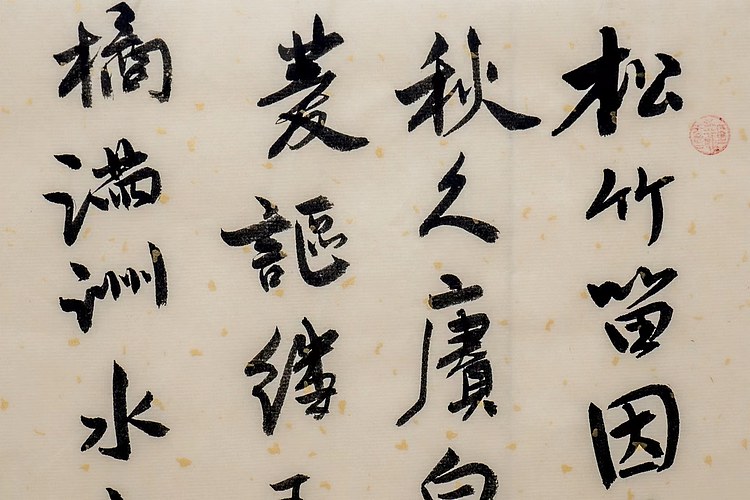 松竹留因
秋久賡白
菱謳縷
橘滿洲水